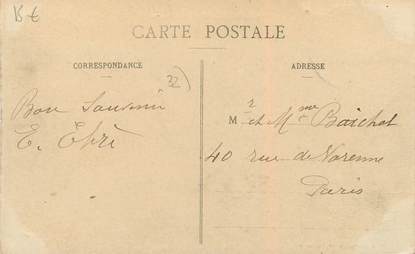 15 €
CARTE POSTALE
CORRESPONDANCE
32
Bon Souvenir
E.
ADRESSE
Mr et Mme Baichot
40 rue de Varenne
Paris